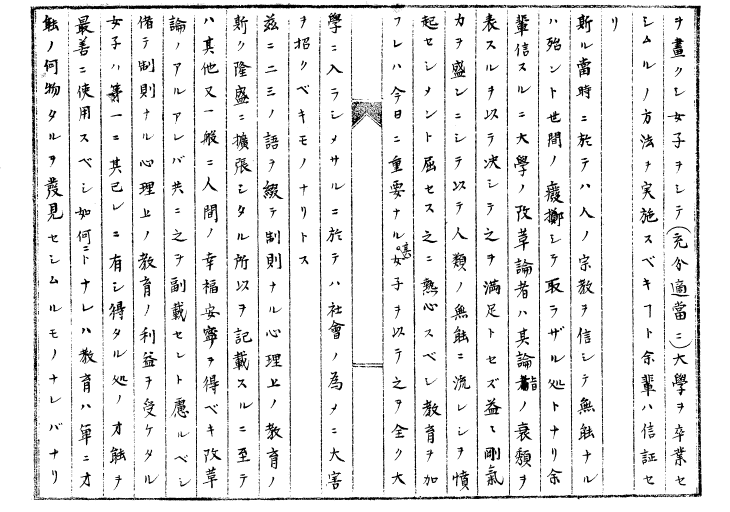 ヲ畫クシ女子ヲシテ(充分適當ニ)大學ヲ卒業セ
シムルノ方法ヲ実施スベキヿト余輩ハ信証セ
リ
斯ル當時ニ於テハ人ノ宗教ヲ信シテ無能ナル
ハ殆ント世間ノ癈擲シテ取ラザル処トナリ余
輩信スルニ大學ノ改革論者ハ其論諧ノ衰頽ヲ
表スルヲ以テ决シテ之ヲ満足トセズ益々剛氣
力ヲ盛ンニシテ以テ人類ノ無能ニ流レシヲ憤
起セシメント屈セス之ニ熱心スベシ教育ヲ加
フレハ今日ニ重要ナル女子ヲ以テ之ヲ全ク大
學ニ入ラシメサルニ於テハ社會ノ為メニ大害
ヲ招クベキモノナリトス
茲ニ二三ノ語ヲ綴テ制則ナル心理上ノ教育ノ
斯ク隆盛ニ擴張シタル所以ヲ記載スルニ至テ
ハ其他又一般ニ人間ノ幸福安寧ヲ得ベキ改革
論ノアルアレバ共ニ之ヲ副載セント慮ルベシ
偖テ制則ナル心理上ノ教育ノ利益ヲ受ケタル
女子ハ第一ニ其己レニ有シ得タル処ノオ能ヲ
最善ニ使用スベシ如何ニトナレハ教育ハ単ニオ
能ノ何物タルヲ發見セシムルモノナレバナリ